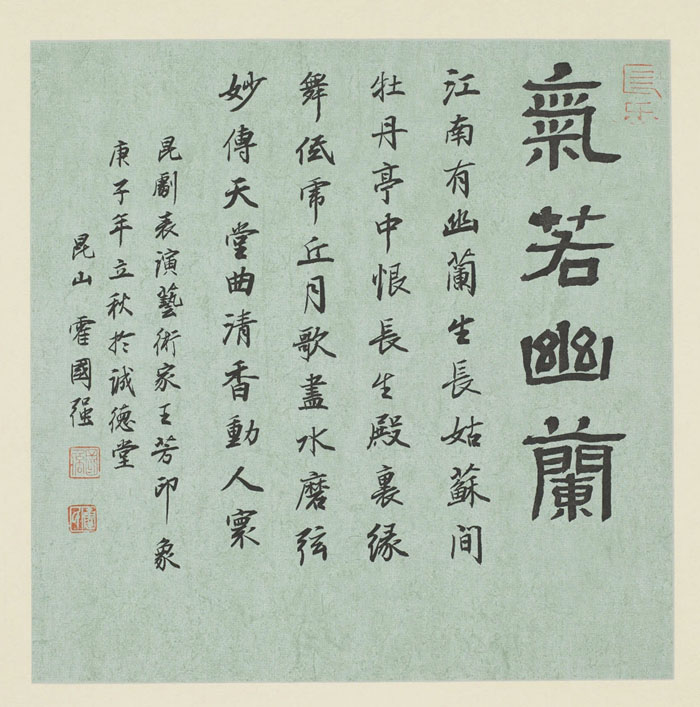 氣若幽蘭
江南有幽蘭生長姑蘇間
牡丹亭中恨長生殿裏緣
舞低虎丘月歌盡水磨弦
妙傳天堂曲清香動人寰
昆劇表演藝術家王芳印象
庚子年立秋於誠德堂
昆山霍國强